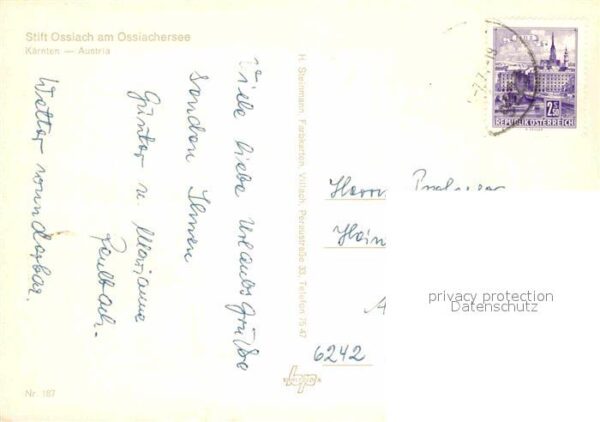 Stift Ossiach am Ossiachersee
Kärnten — Austria
Viele liebe Urlaubsgrüße
senden Ihnen
Günter u. Marianne
Wetter wunderbar.
H. Steinmann, Farbkarten, Villach, Peraustraße 33, Telefon 75 47
Nr. 187
WIEN
2.50
REPUBLIK ÖSTERREICH
Herrn
Hein
6242
privacy protection
Datenschutz